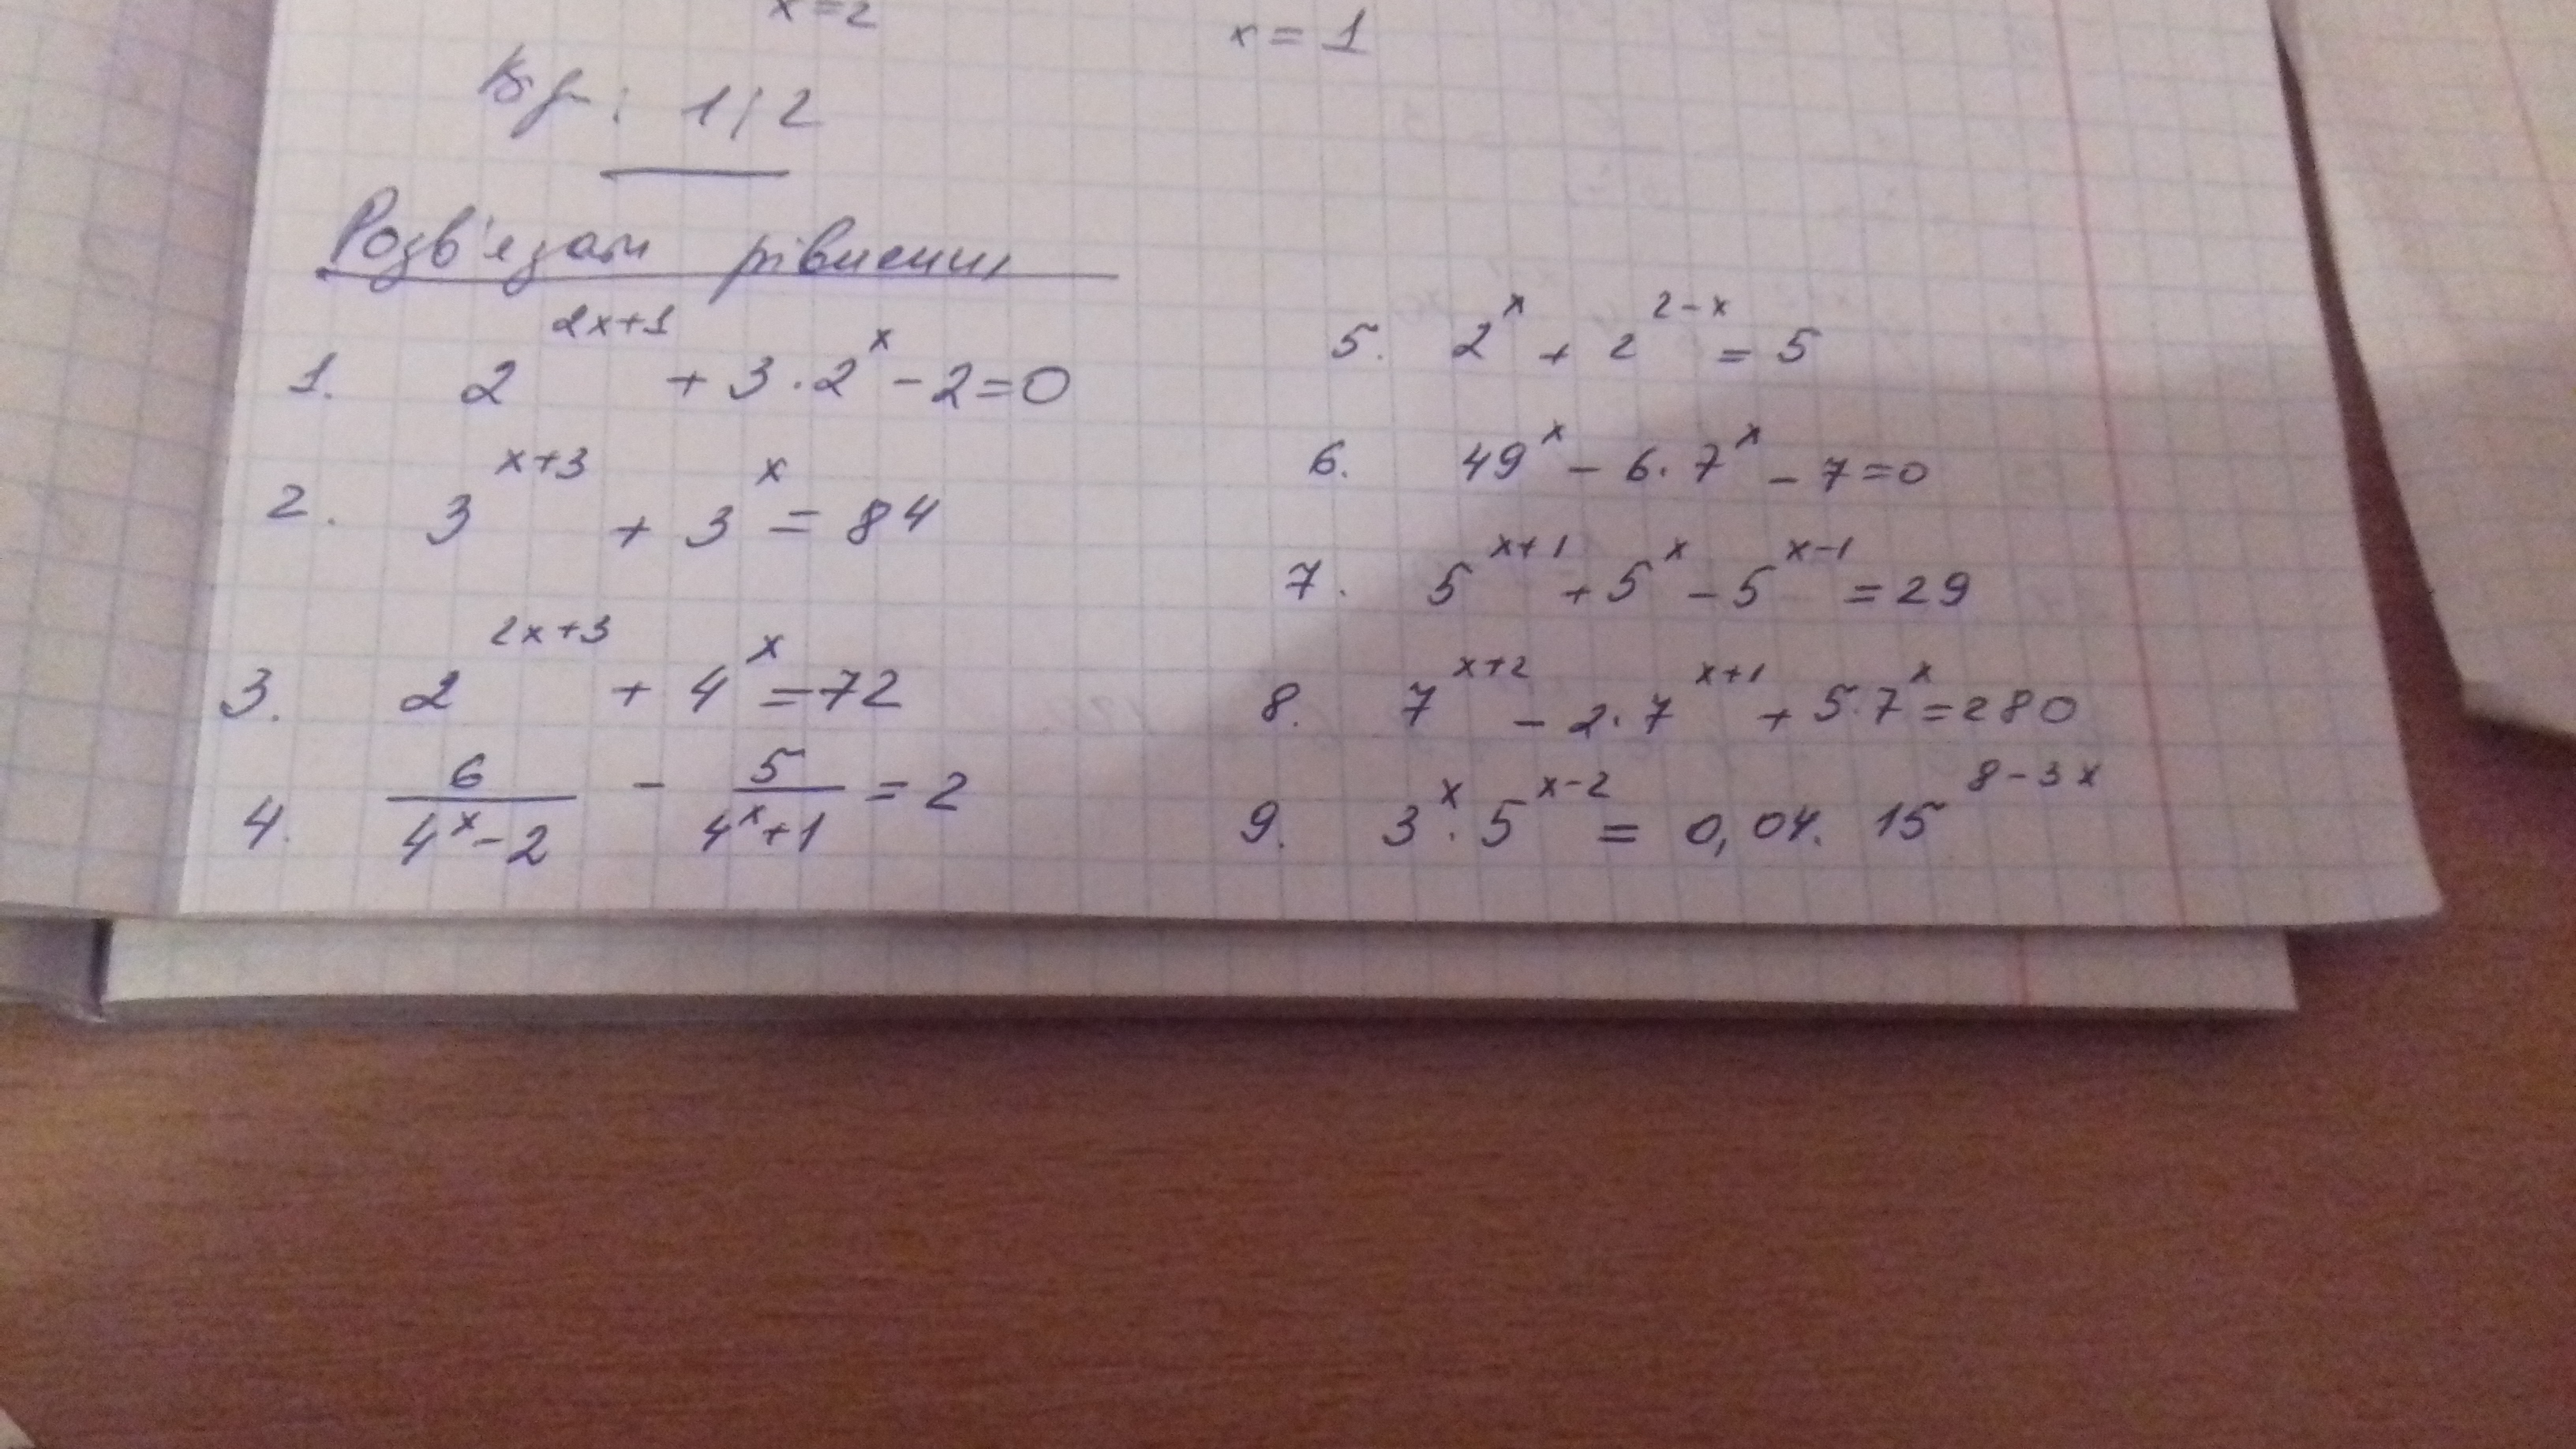 x=2
x = 1
1; 2
Розв'язати рівнення
1. 2^{2x+1} + 3·2^x − 2=0
2. 3^{x+3} + 3^x = 84
3. 2^{2x+3} + 4^x = 72
4. \frac{6}{4^x−2} − \frac{5}{4^x+1} = 2
5. 2^x + 2^{2−x} = 5
6. 49^x − 6·7^x − 7=0
7. 5^{x+1} + 5^x − 5^{x−1} = 29
8. 7^{x+2} − 2·7^{x+1} + 5·7^x = 280
9. 3^x · 5^{x−2} = 0,04 · 15^{8−3x}